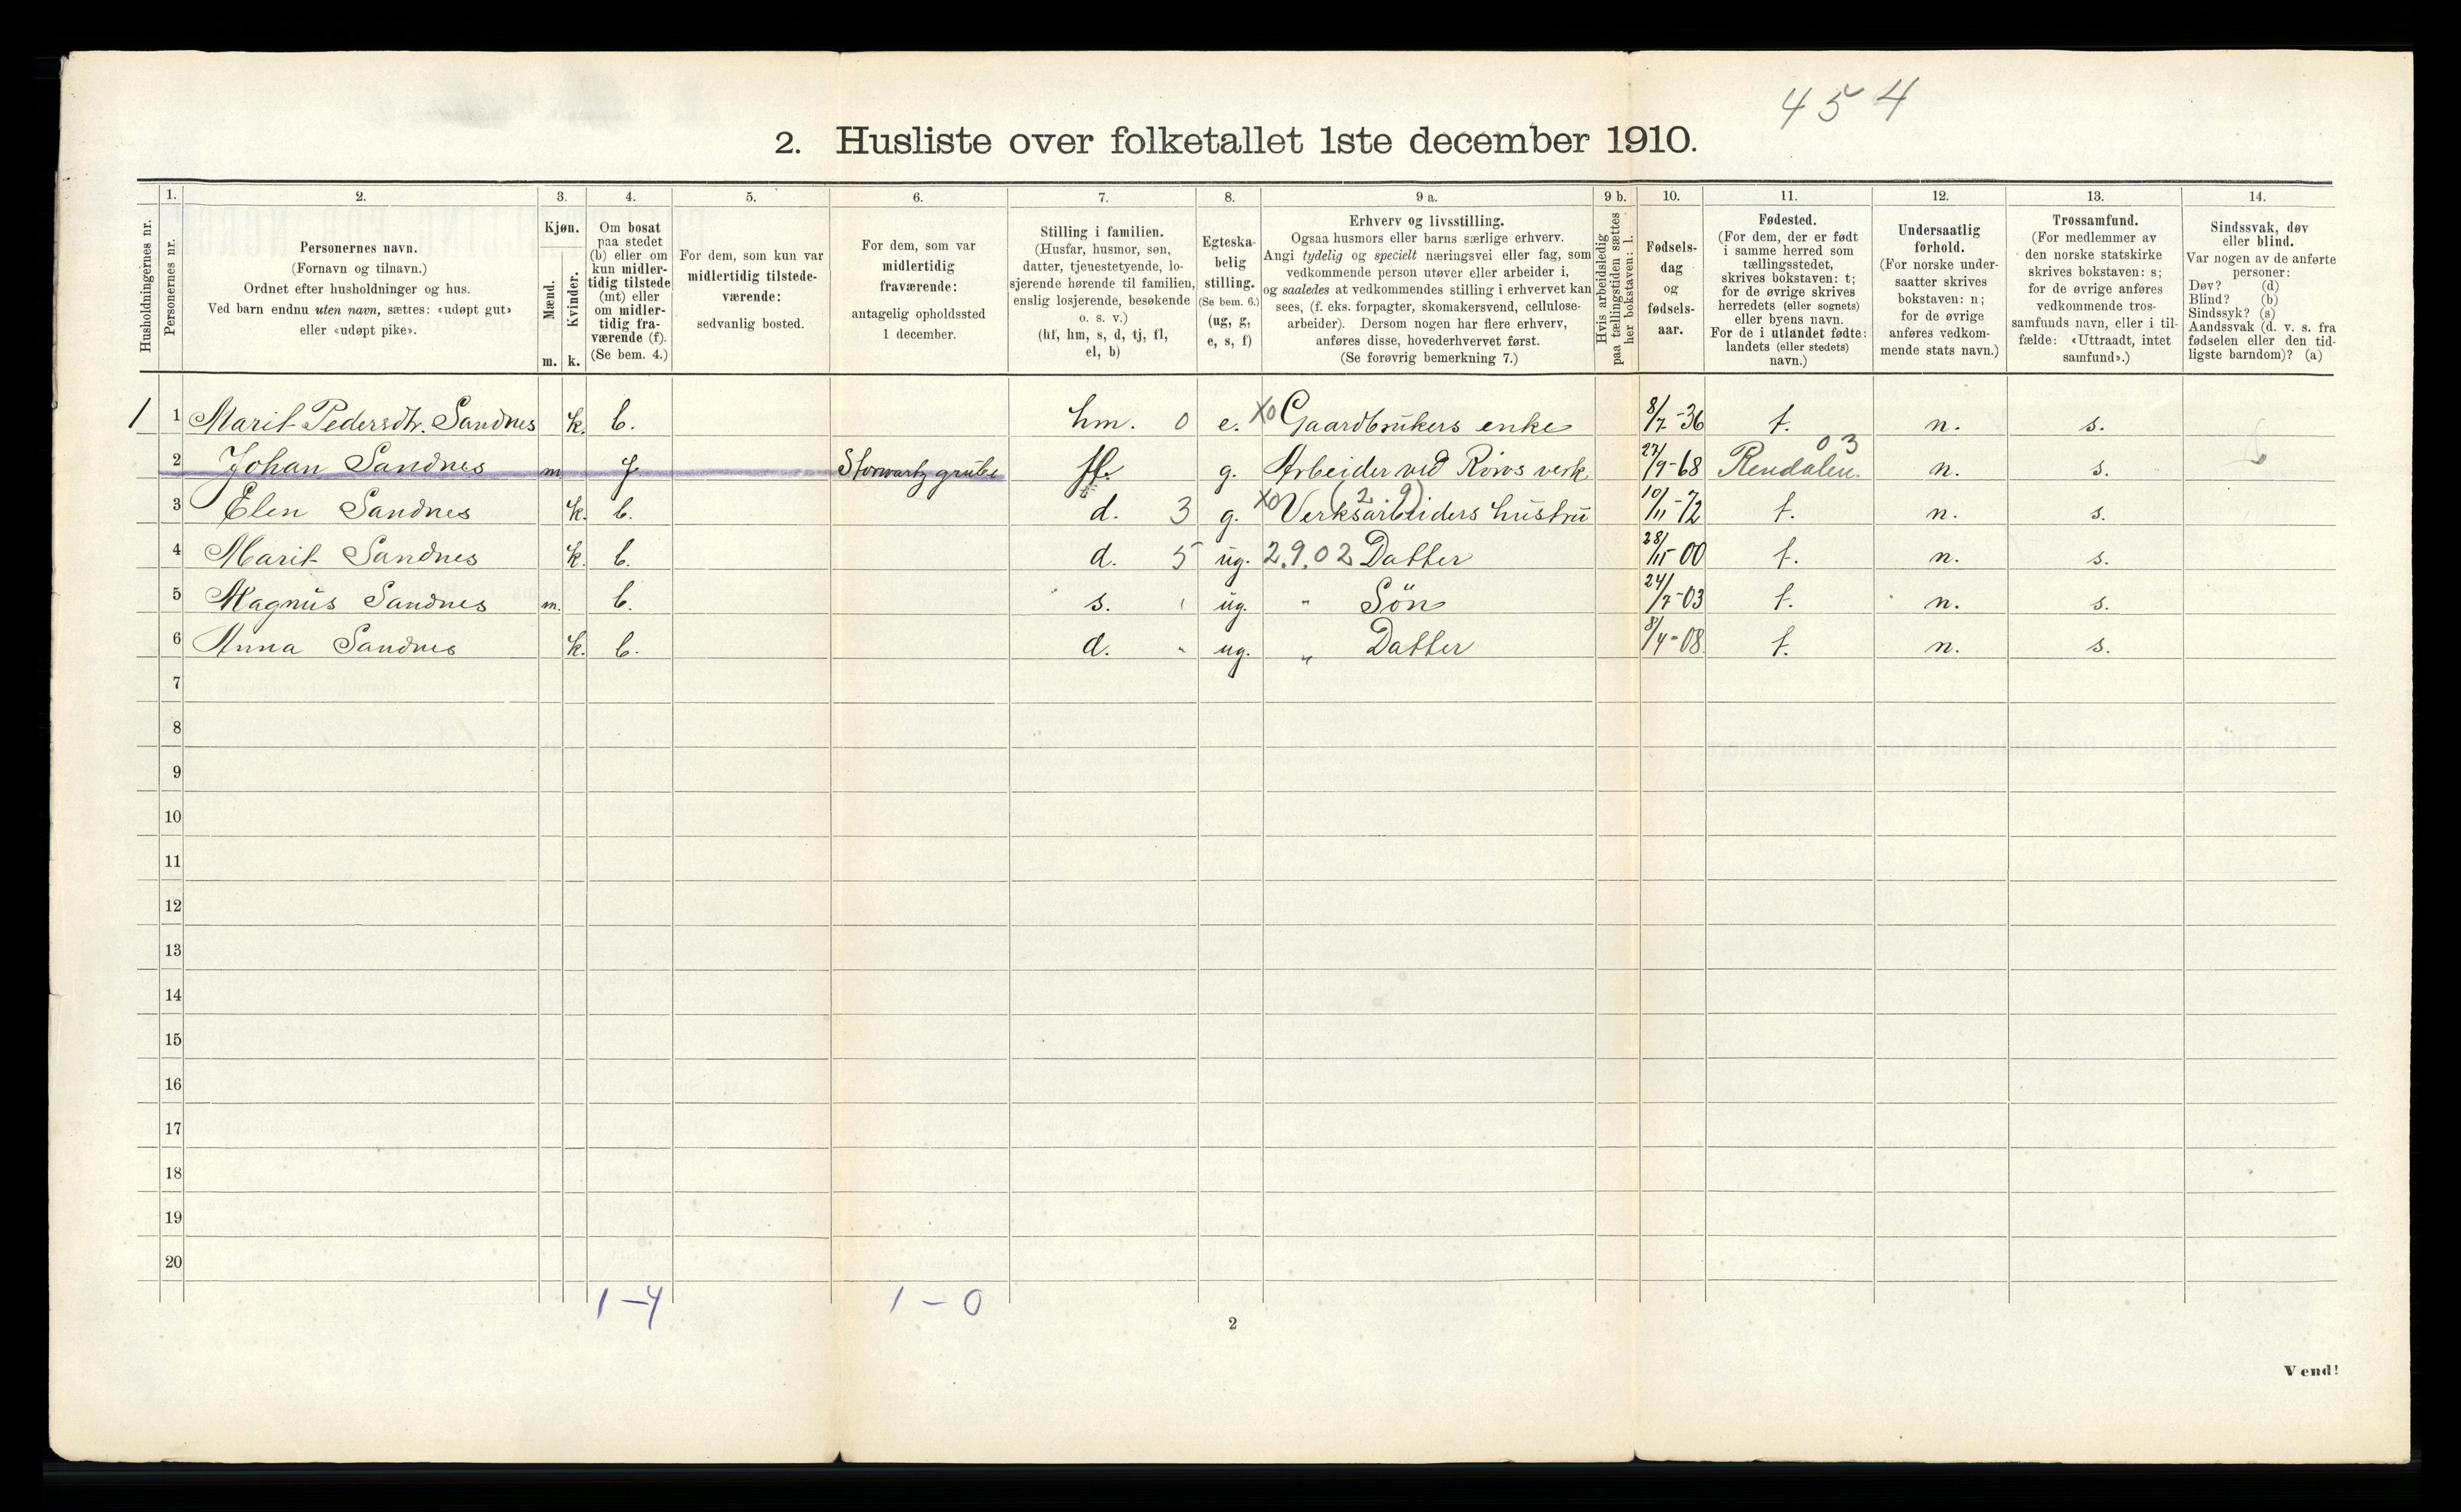 454
2. Husliste over folketallet 1ste december 1910.
Husholdningernes nr.
1.
Personernes nr.
2.
Personernes navn.
(Fornavn og tilnavn.)
Ordnet efter husholdninger og hus.
Ved barn endnu uten navn, sættes: «udøpt gut»
eller «udøpt pike».
3.
Kjøn.
Mænd.
Kvinder.
m. k.
4.
Om bosat
paa stedet
(b) eller om
kun midler-
tidig tilstede
(mt) eller
om midler-
tidig fra-
værende (f).
(Se bem. 4.)
5.
For dem, som kun var
midlertidig tilstede-
værende:
sedvanlig bosted.
6.
For dem, som var
midlertidig
fraværende:
antagelig opholdssted
1 december.
7.
Stilling i familien.
(Husfar, husmor, søn,
datter, tjenestetyende, lo-
sjerende hørende til familien,
enslig losjerende, besøkende
o. s. v.)
(hf, hm, s, d, tj, fl,
el, b)
8.
Egteska-
belig
stilling.
(Se bem. 6.)
(ug, g,
e, s, f)
9 a.
Erhverv og livsstilling.
Ogsaa husmors eller barns særlige erhverv.
Angi tydelig og specielt næringsvei eller fag, som
vedkommende person utøver eller arbeider i,
og saaledes at vedkommendes stilling i erhvervet kan
sees, (f. eks. forpagter, skomakersvend, cellulose-
arbeider). Dersom nogen har flere erhverv,
anføres disse, hovederhvervet først.
(Se forøvrig bemerkning 7.)
9 b.
Hvis arbeidsledig
paa tællingstiden sættes
her bokstaven: l.
10.
Fødsels-
dag
og
fødsels-
aar.
11.
Fødested.
(For dem, der er født
i samme herred som
tællingsstedet,
skrives bokstaven: t;
for de øvrige skrives
herredets (eller sognets)
eller byens navn.
For de i utlandet fødte:
landets (eller stedets)
navn.)
12.
Undersaatlig
forhold.
(For norske under-
saatter skrives
bokstaven: n;
for de øvrige
anføres vedkom-
mende stats navn.)
13.
Trossamfund.
(For medlemmer av
den norske statskirke
skrives bokstaven: s;
for de øvrige anføres
vedkommende tros-
samfunds navn, eller i til-
fælde: «Uttraadt, intet
samfund».)
14.
Sindssvak, døv
eller blind.
Var nogen av de anførte
personer:
Døv? (d)
Blind? (b)
Sindssyk? (s)
Aandssvak (d. v. s. fra
fødselen eller den tid-
ligste barndom)? (a)
1 1 Marit Pedersdtr. Sandnes k. b. hm. 0 e. X0 Gaardbrukers enke 8/7-36 t. n. s.
2 Johan Sandnes m f. Storwartz grube g. Arbeider ved Röros verk 27/9-68 Rendalen. 03 n. s.
3 Elen Sandnes k. b. d. 3 g. X0 Verksarbeiders hustru (2.9) 10/11-72 t. n. s.
4 Marit Sandnes k. b. d. 5 ug. 2.9.02 Datter 28/11-00 t. n. s.
5 Magnus Sandnes m. b. s. ug. " Sön 24/7-03 t. n. s.
6 Anna Sandnes k. b. d. " ug. " Datter 8/4-08 t. n. s.
7
8
9
10
11
12
13
14
15
16
17
18
19
20
1-4 1-0
2
Vend!